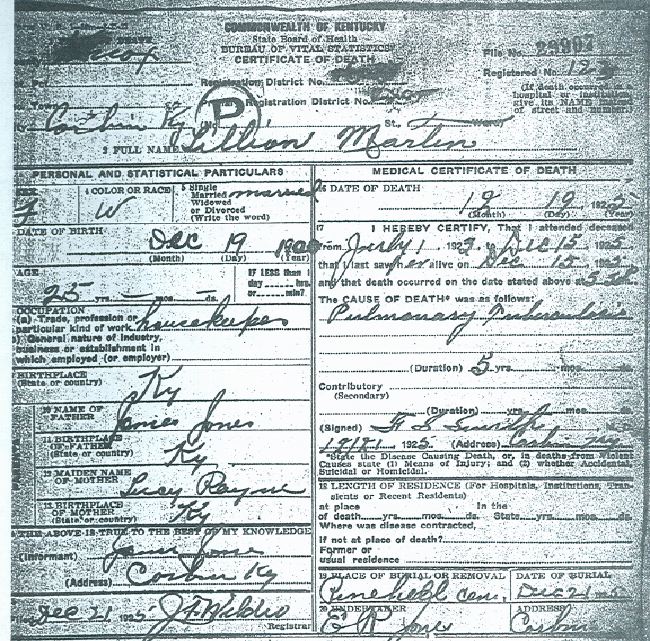 COMMONWEALTH OF KENTUCKY
State Board of Health
BUREAU OF VITAL STATISTICS
CERTIFICATE OF DEATH
Knox
File No.
Registration District No.
Registered No. 12
Registration District No.
(If death occurred
hospital or institution
give its NAME
of street and number
Town Corbin Ky St. Ward)
P
3 FULL NAME Lillian Marlin
PERSONAL AND STATISTICAL PARTICULARS
F
4 COLOR OR RACE W
5 Single
Married
Widowed
or Divorced
(Write the word) married
DATE OF BIRTH
Dec 19 1900
(Month) (Day) (Year)
AGE
25 yrs. — mos. — ds.
IF LESS than 1
day hrs.
or min?
OCCUPATION
(a) Trade, profession or
particular kind of work housekeeper
) General nature of industry,
business or establishment in
which employed (or employer)
BIRTHPLACE
(State or country) Ky
10 NAME OF
FATHER James Jones
11 BIRTHPLACE
OF FATHER
(State or country) Ky
12 MAIDEN NAME
OF MOTHER Lucy
13 BIRTHPLACE
OF MOTHER
(State or country) Ky
THE ABOVE IS TRUE TO THE BEST OF MY KNOWLEDGE
(Informant) Jones
(Address) Corbin Ky
Dec 21 1925
Registrar
MEDICAL CERTIFICATE OF DEATH
16 DATE OF DEATH
12 19 1925
(Month) (Day) (Year)
17 I HEREBY CERTIFY, That I attended deceased
from July 1 192 to Dec 15 1925
that I last saw her alive on Dec 15 192
and that death occurred on the date stated above at
The CAUSE OF DEATH* was as follows:
Pulmonary Tuberculosis
(Duration) 5 yrs. mos. ds.
Contributory
(Secondary)
(Duration) yrs. mos. ds.
(Signed)
1925 (Address) Corbin Ky
*State the Disease Causing Death, or, in deaths from Violent
Causes state (1) Means of Injury; and (2) whether Accidental,
Suicidal or Homicidal.
18 LENGTH OF RESIDENCE (For Hospitals, Institutions, Tran-
sients or Recent Residents)
at place In the
of death yrs. mos. ds. State yrs. mos. ds.
Where was disease contracted,
if not at place of death?
Former or
usual residence
19 PLACE OF BURIAL OR REMOVAL DATE OF BURIAL
Pinehill Cem. Dec 21
20 UNDERTAKER ADDRESS
Jones Corbin